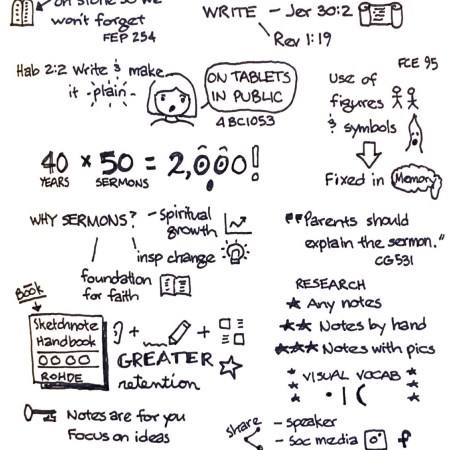 on stone so we
won't forget
FEP 254
WRITE - Jer 30:2
Rev 1:19
Hab 2:2 Write & make
it -plain-
ON TABLETS
IN PUBLIC
4BC1053
FCE 95
Use of
figures
& symbols
Fixed in Memory
40 × 50 = 2,000!
YEARS SERMONS
WHY SERMONS? - Spiritual
growth
insp change
foundation
for faith
"Parents should
explain the sermon."
CG531
Book
Sketchnote
Handbook
ROHDE
+ +
GREATER
retention
RESEARCH
★ Any notes
★★ Notes by hand
★★★ Notes with pics
VISUAL VOCAB
• | (
Notes are for you
Focus on ideas
share - speaker
- Soc media f